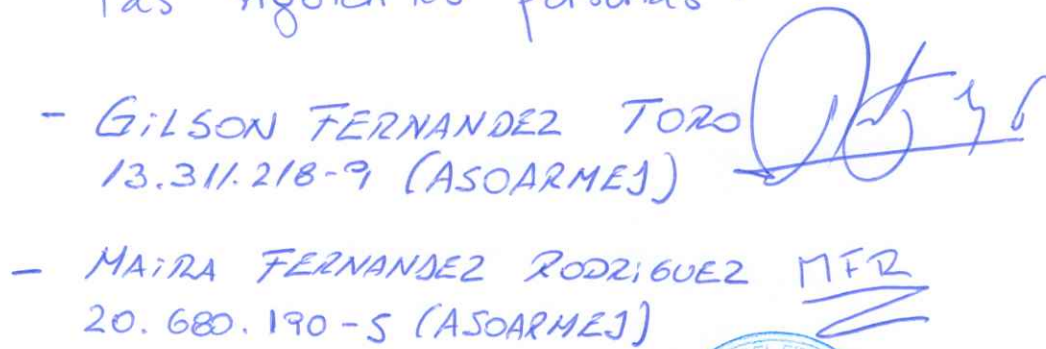 las siguientes personas
- GILSON FERNANDEZ TORO
13.311.218-9 (ASOARMEJ)
- MAIRA FERNANDEZ RODRIGUEZ MFR
20.680.190-5 (ASOARMEJ)